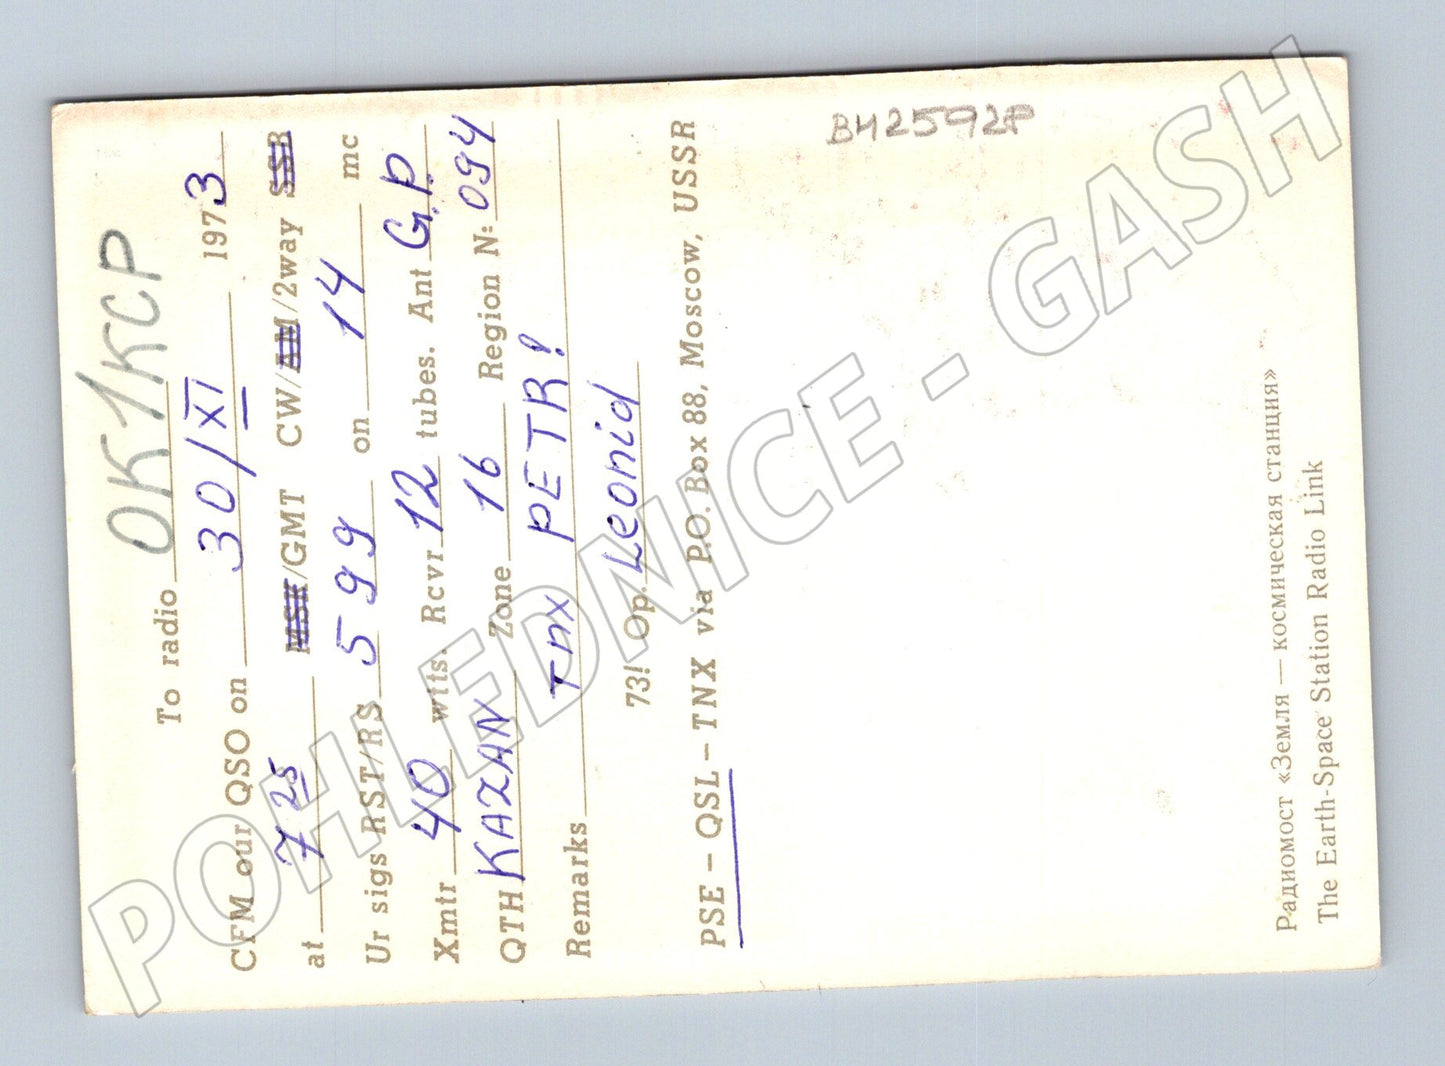 To radio OK1KCP
CFM our QSO on 30/XI 1973
at 7 25 MSK/GMT CW/AM/2way SSB
Ur sigs RST/RS 599 on 14 mc
Xmtr 40 wtts. Rcvr 12 tubes. Ant G.P.
QTH KAZAN Zone 16 Region N: 094
Remarks Tnx PETR!
73! Op. Leonid
PSE – QSL – TNX via P.O. Box 88, Moscow, USSR
Радиомост «Земля — космическая станция»
The Earth-Space Station Radio Link
B42592P
POHLEDNICE - GASH